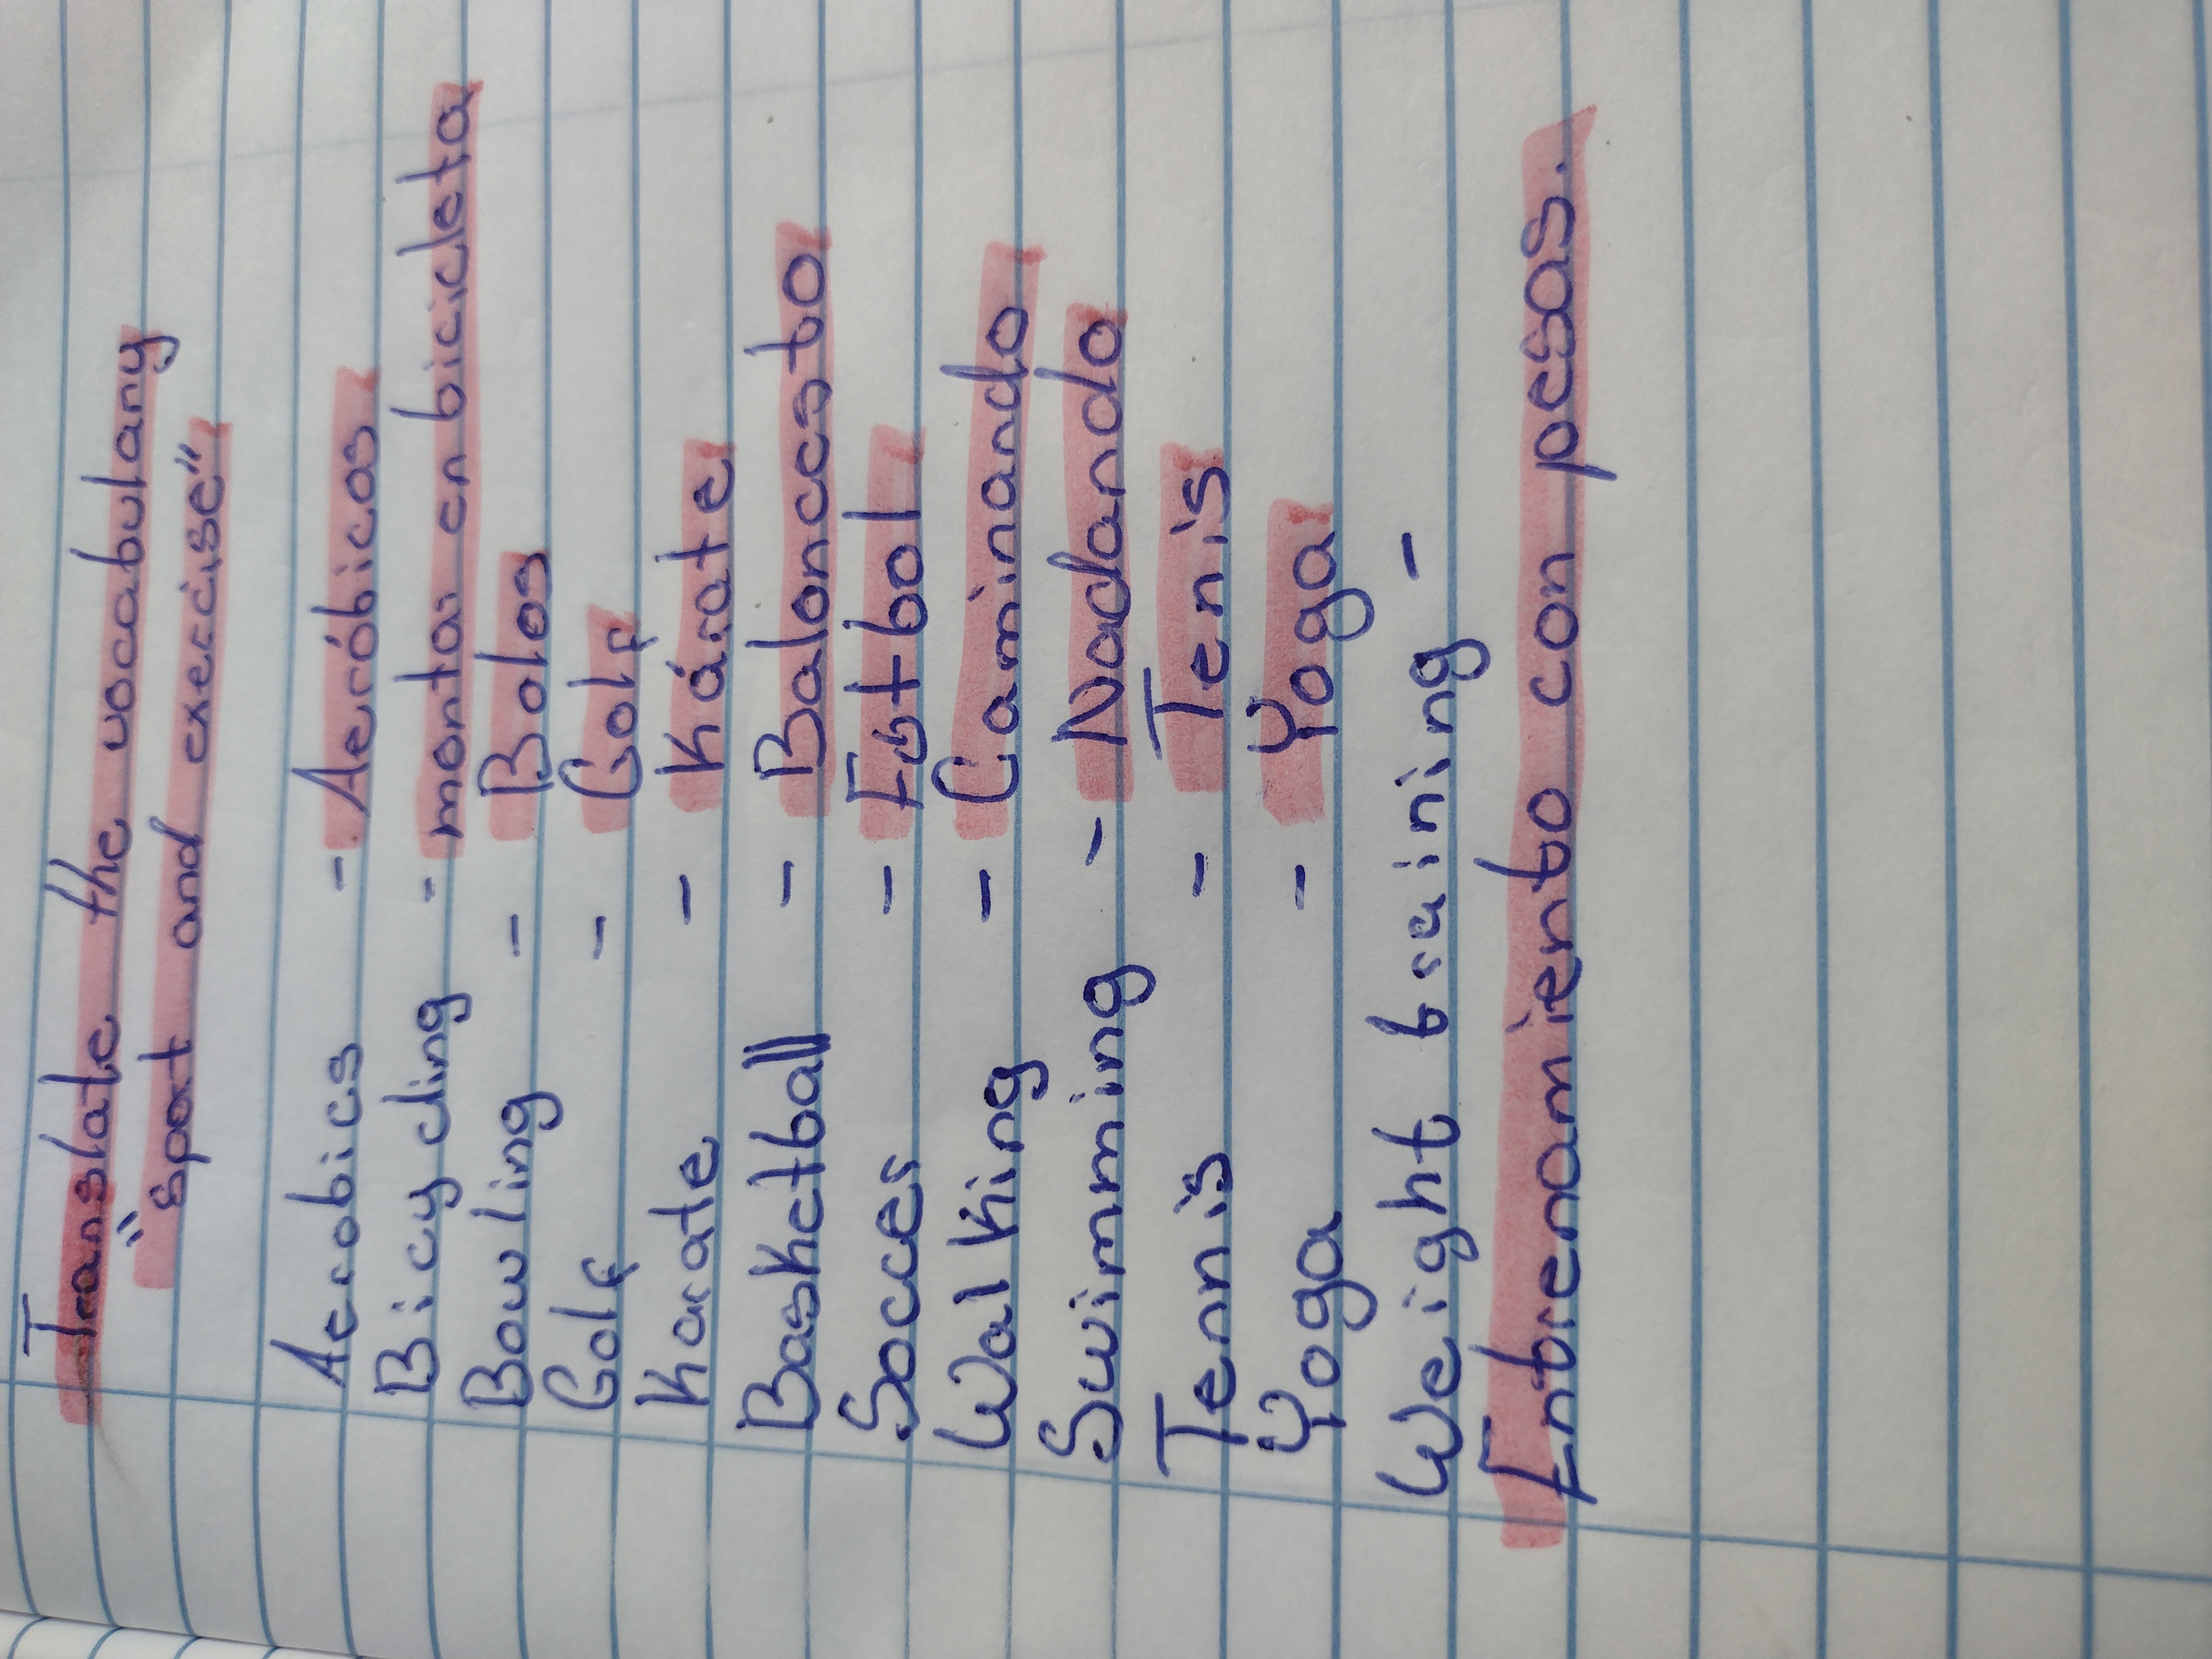 Translate the vocabulany
"sport and exercise"
Aerobics - Aeróbicos
Bicycling - montar en bicicleta
Bowling - Bolos
Golf - Golf
Karate - Kárate
Basketball - Baloncesto
Soccer - Fútbol
Walking - Caminando
Swimming - Nadando
Tennis - Tenis
Yoga - Yoga
Weight training -
Entrenamiento con pesas.